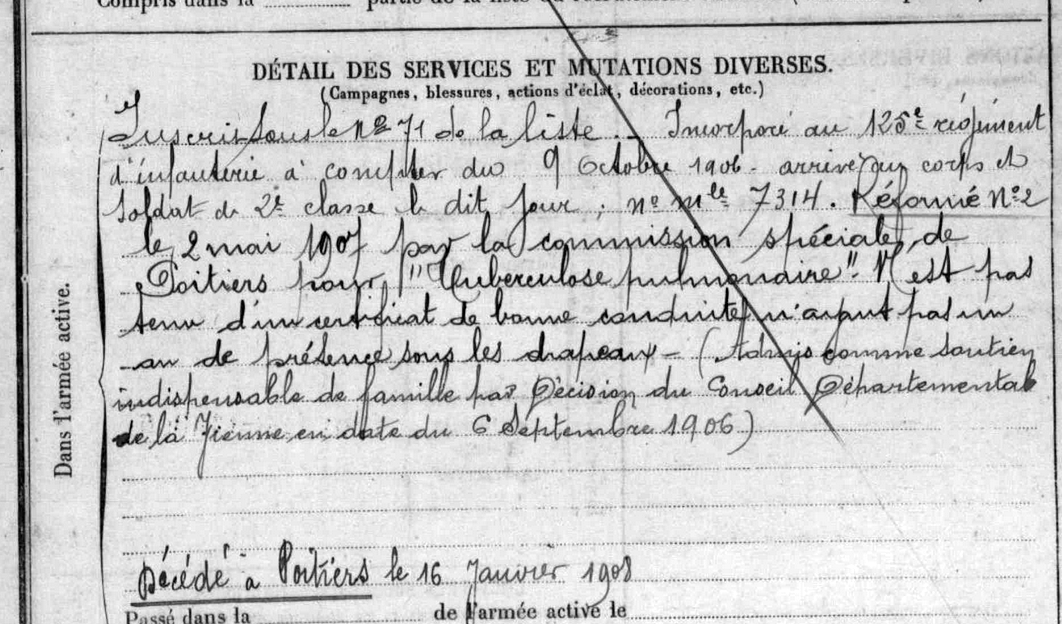 Compris dans la partie de la liste
DÉTAIL DES SERVICES ET MUTATIONS DIVERSES.
(Campagnes, blessures, actions d'éclat, décorations, etc.)
Inscrit sous le No 71 de la liste. Incorporé au 125e régiment
d'infanterie à compter du 9 Octobre 1906. arrivé au corps et
soldat de 2e classe le dit jour; no mle 7314. Réformé No 2
le 2 mai 1907 par la commission spéciale de
Poitiers pour "Tuberculose pulmonaire". N'est pas
tenu d'un certificat de bonne conduite n'ayant pas un
an de présence sous les drapeaux - (Admis comme soutien
indispensable de famille par Décision du Conseil Départemental
de la Vienne en date du 6 Septembre 1906)
Dans l'armée active.
Décédé à Poitiers le 16 Janvier 1908
Passé dans la de l'armée active le